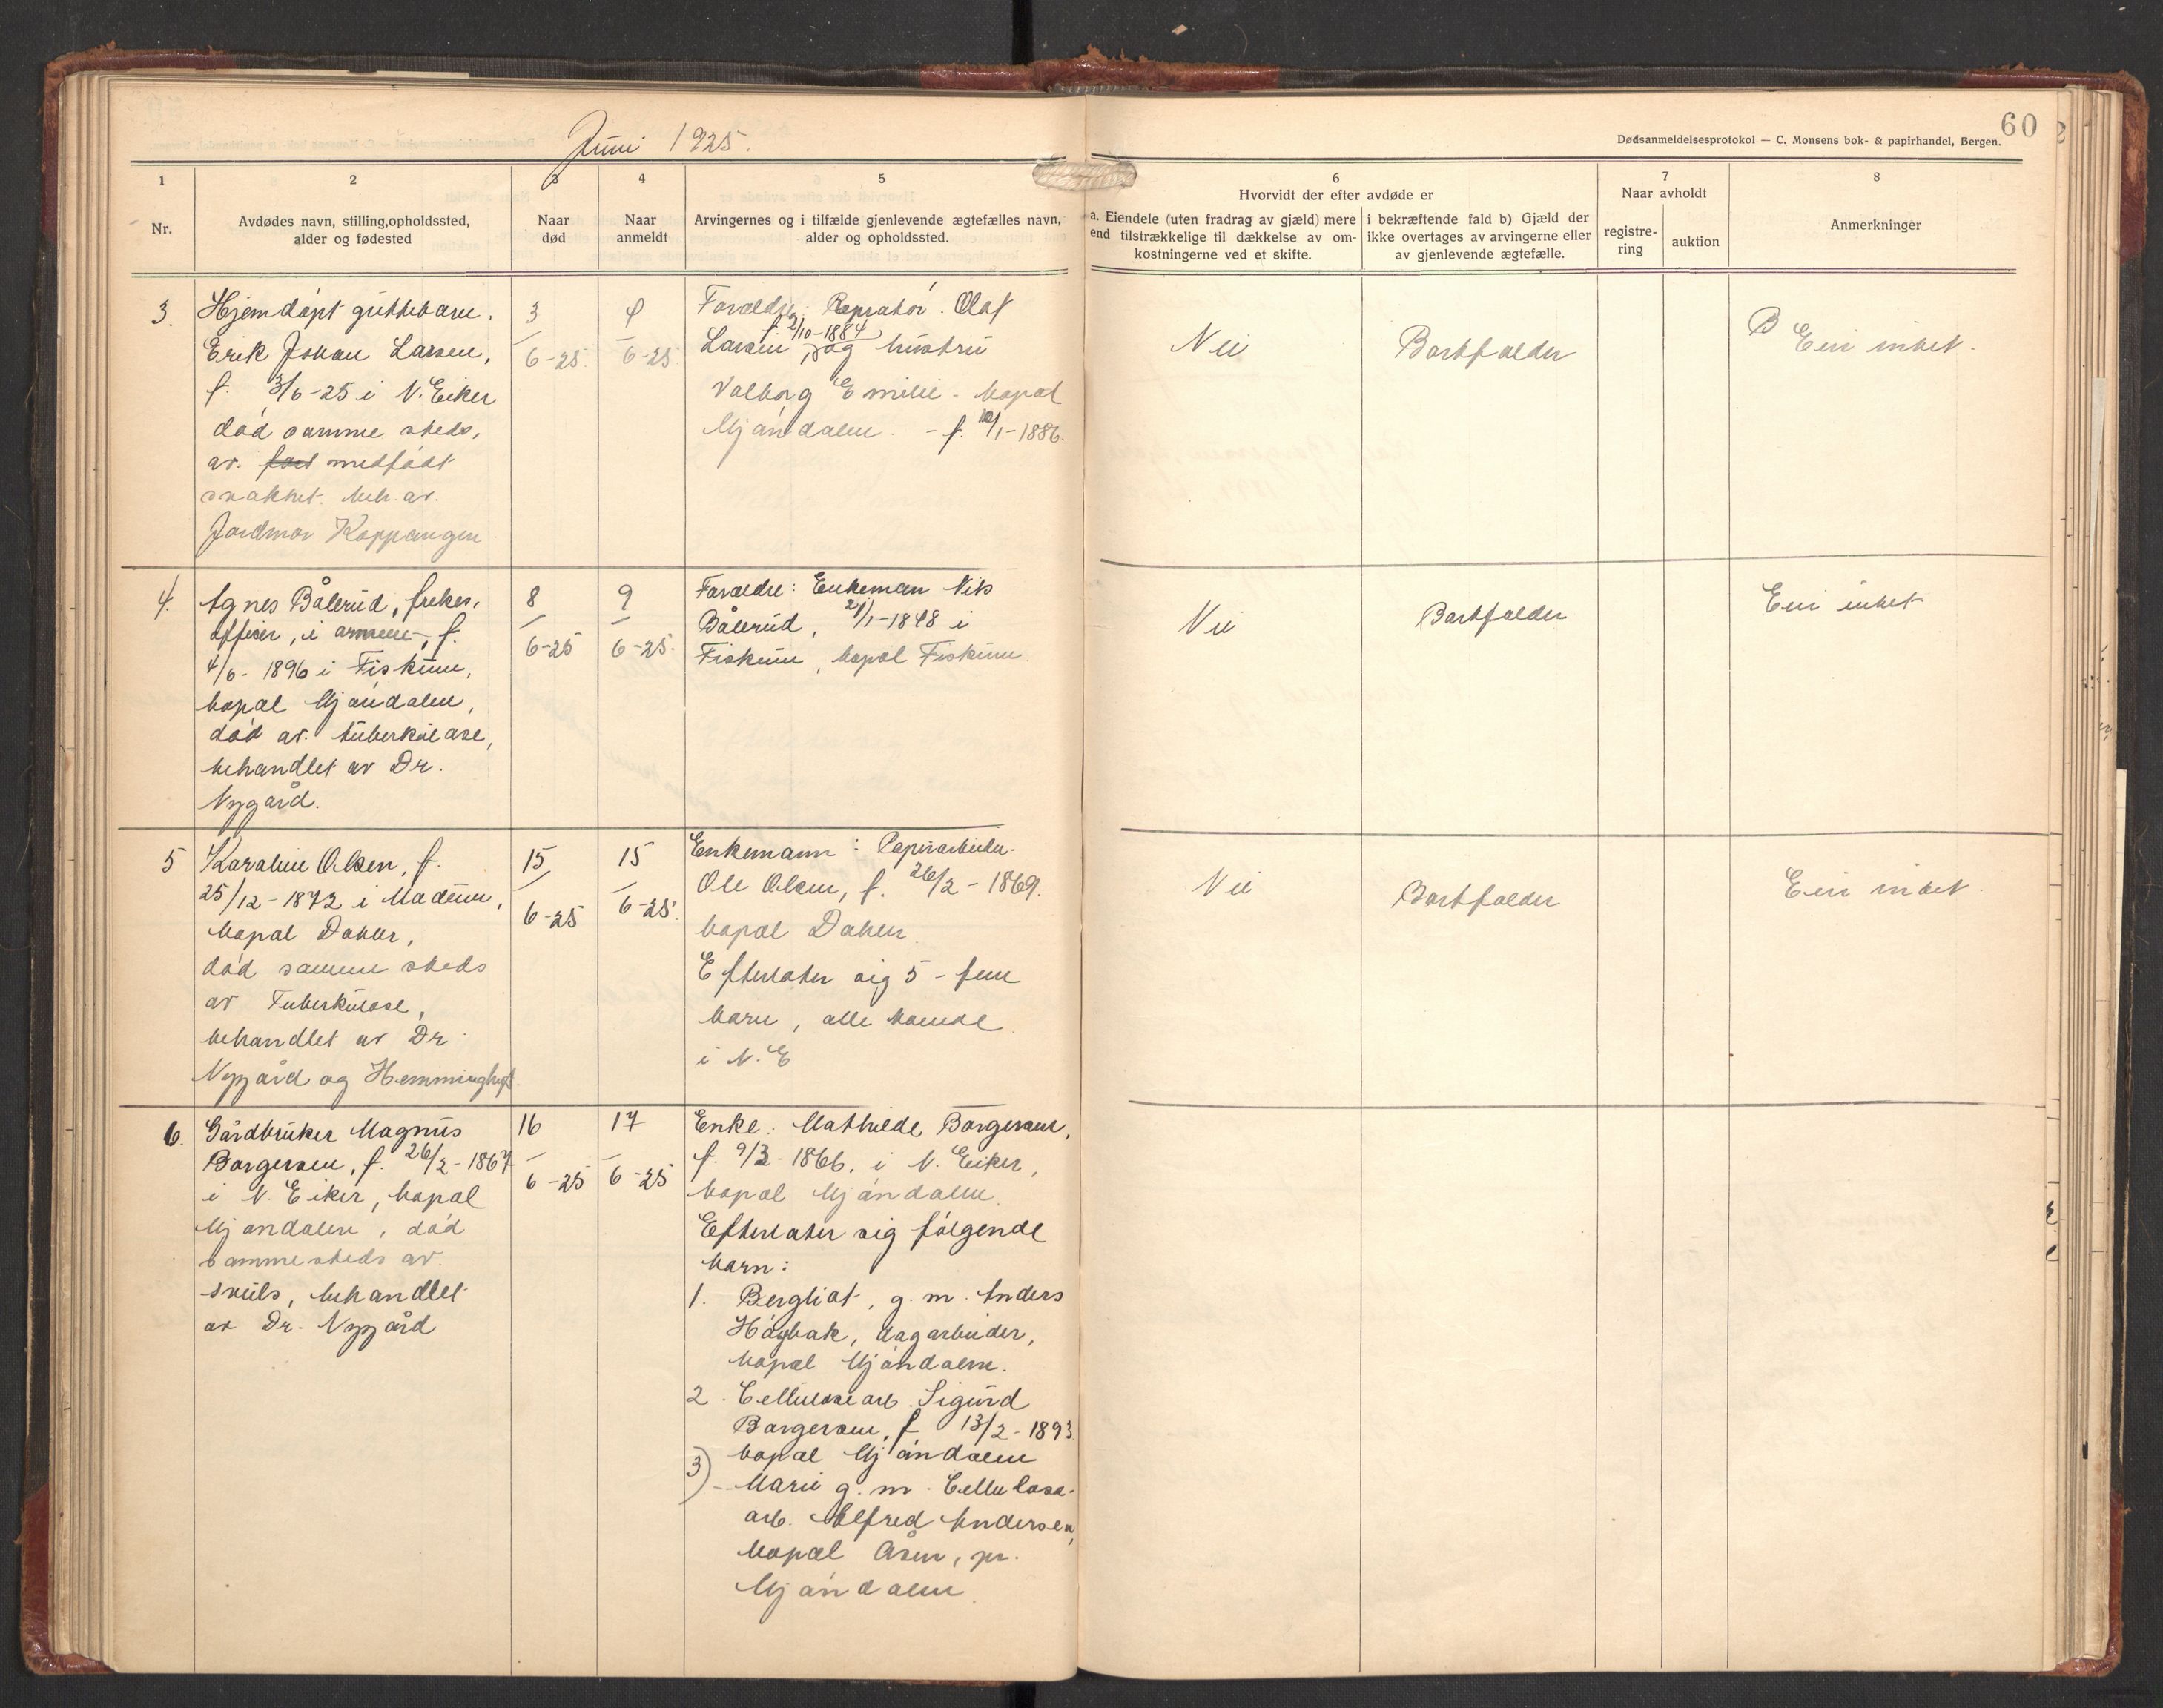 Juni 1925.
60
Dødsanmeldelsesprotokol — C. Monsens bok- & papirhandel, Bergen.
1
2
3
4
5
6
7
8
Nr.
Avdødes navn, stilling,opholdssted,
alder og fødested
Naar
død
Naar
anmeldt
Arvingernes og i tilfælde gjenlevende ægtefælles navn,
alder og opholdssted.
Hvorvidt der efter avdøde er
a. Eiendele (uten fradrag av gjæld) mere
end tilstrækkelige til dækkelse av om-
kostningerne ved et skifte.
i bekræftende fald b) Gjæld der
ikke overtages av arvingerne eller
av gjenlevende ægtefælle.
Naar avholdt
registre-
ring
auktion
Anmerkninger
3.
Hjemdøpt guttebarn,
Erik Johan Larsen,
f. 3/6-25 i N. Eiker
død samme steds,
av medfødt
svakhet. beh. av.
Jordmor Koppangen
3
6-25.
4
6-25.
Forældre: Repratør Olaf
f. 2/10-1884
Larsen, og hustru
Valborg Emilie - bopæl
Mjøndalen. - f. /1-1886.
Nei
Bortfalder
B
Eier intet.
4.
Agnes Bålerud, frelses.
offiser, i armeen, f.
4/6- 1896 i Fiskum,
bopæl Mjøndalen,
død av. tuberkulose,
behandlet av Dr.
Nygård.
8
6-25
9
6-25.
Forældre: Enkeman Nils
Bålerud, 21/1-1848 i
Fiskum, bopæl Fiskum.
Nei
Bortfalder
Eier intet
5
Karoline Olsen, f.
25/12-1872 i Modum,
bopæl Dahler,
død samme steds
av Tuberkulose,
behandlet av Dr
Nygård og Hemminghytt.
15
6-25
15
6-25.
Enkemann: Papirarbeider.
Ole Olsen, f. 26/2-1869.
bopæl Dahler
Efterlater sig 5 - fem
barn, alle boende
i N. E
Nei
Bortfalder
Eier intet.
6.
Gårdbruker Magnus
Borgersen, f. 26/2-1867
i N. Eiker, bopæl
Mjøndalen, død
sammesteds av
svuls, behandlet
av Dr. Nygård
16
6-25
17
6-25
Enke: Mathilde Borgersen,
f. 9/3-1866. i N. Eiker,
bopæl Mjøndalen.
Efterlater sig følgende
barn:
1. Bergliot, g. m. Anders
Høgbak, dagarbeider,
bopæl Mjøndalen.
2. Cellulosearb. Sigurd
Borgersen, f 13/2-1893
bopæl Mjøndalen
3) Marie g. m. Cellulose-
arb. Alfred Andersen,
bopæl Åsen, pr.
Mjøndalen.